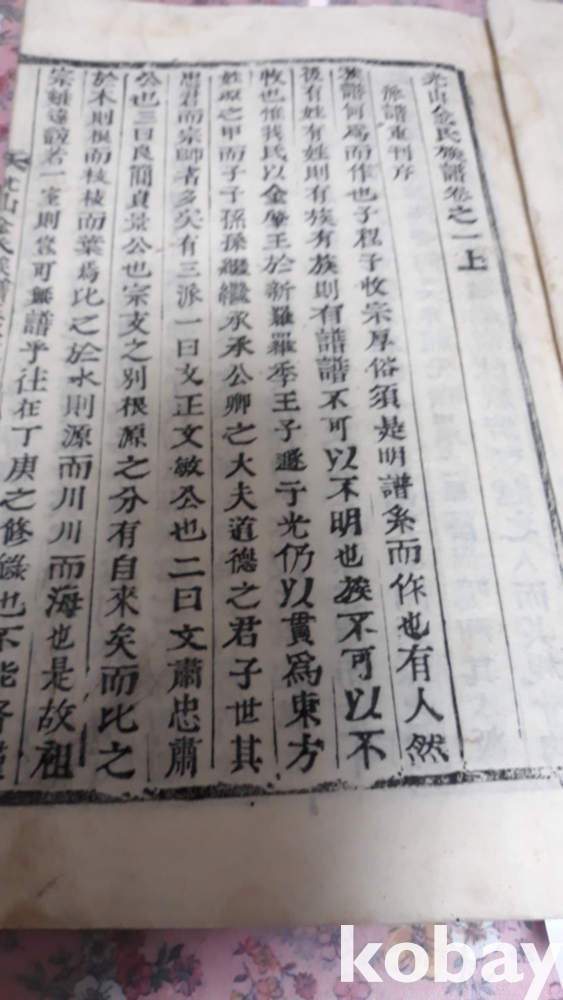 光山金氏族譜卷之一上
族譜重刊序
族譜何爲而作也子程子收宗厚俗須是明譜系而作也有人然
後有姓有姓則有族有族則有譜譜不可以不明也族不可以不
收也惟我氏以金摩王於新羅羅季王子遯于光仍以貫爲東方
姓源之甲而子子孫孫繼繼承承公卿之大夫道德之君子世其
忠君而宗師者多矣有三派一曰文正文敏公也二曰文肅忠肅
公也三曰良簡貞景公也宗支之別根源之分有自來矣而比之
於木則根而枝枝而葉焉比之於水則源而川川而海也是故祖
宗雖遠視若一室則豈可無譜乎往在丁庚之修 也不能
山金氏族譜
kobay